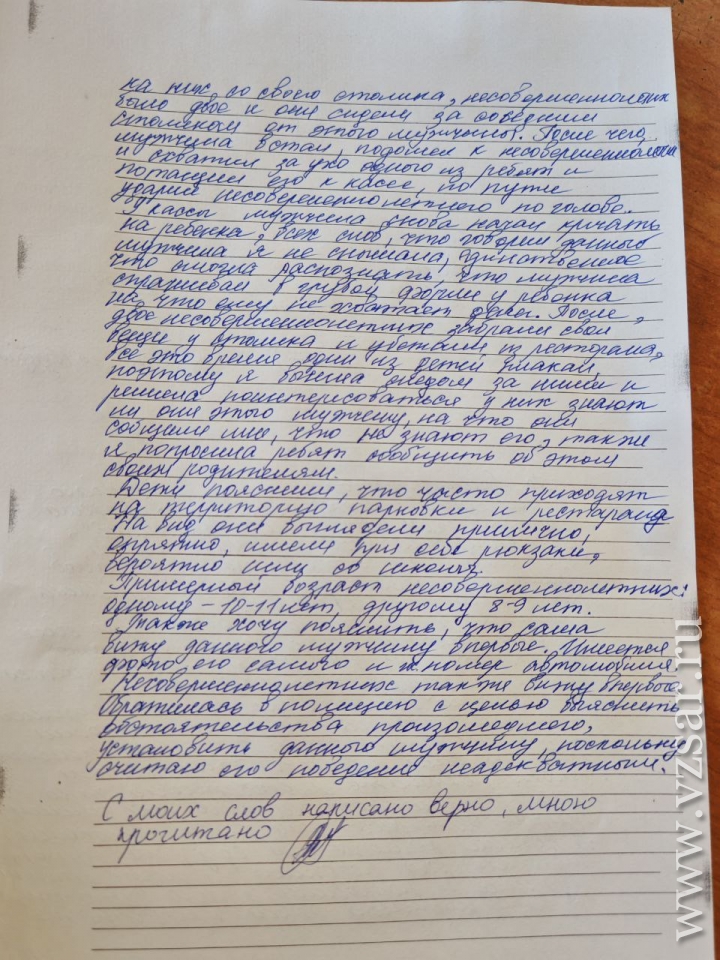 на них, со своего столика, несовершеннолетних
было двое и они сидели за соседним
столиком от этого мужчины. После чего
мужчина встал, подошел к несовершеннолетним
и схватил за ухо одного из ребят и
потащил его к кассе, по пути
ударил несовершеннолетнего по голове.
У кассы мужчина снова начал кричать
на ребенка, всех слов, что говорил данный
мужчина я не слышала, единственное
что смогла распознать, что мужчина
спрашивал в грубой форме у ребенка
на что ему не хватает денег. После,
двое несовершеннолетних забрали свои
вещи у столика и убежали из ресторана,
все это время один из детей плакал,
поэтому я вышла следом за ними и
решила поинтересоваться у них знают
ли они этого мужчину, на что они
сообщили мне, что не знают его, также
я попросила ребят сообщить об этом
своим родителям.
Дети пояснили, что часто приходят
на территорию парковки и ресторана.
На вид они выглядели прилично,
опрятно, имели при себе рюкзаки,
вероятно шли со школы.
Примерный возраст несовершеннолетних:
одному – 10-11 лет, другому 8-9 лет.
Также хочу пояснить, что сама
вижу данного мужчину впервые. Имеется
фото его самого и номер автомобиля.
Несовершеннолетних также вижу впервые.
Обратилась в полицию с целью выяснить
обстоятельства произошедшего,
установить данного мужчину, поскольку
считаю его поведение неадекватным.
С моих слов написано верно, мною
прочитано
www.vzsar.ru